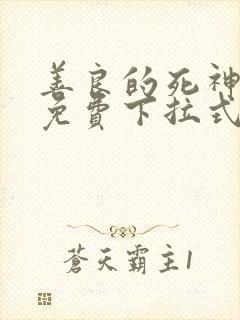 善良的死神
免費下拉式
蒼天霸主1